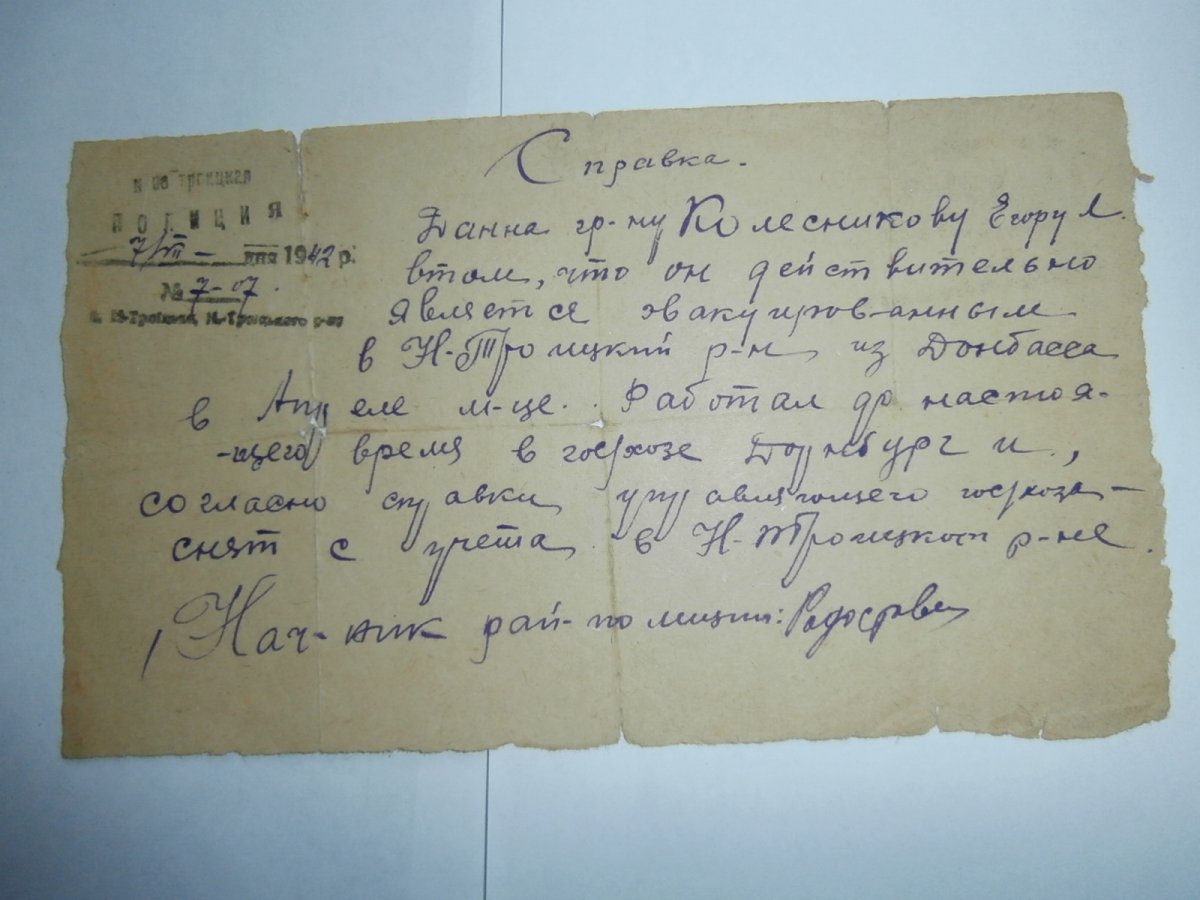 Справка.
Н ово Троицкая
ПОЛИЦИЯ
7/VII - дня 1942 р.
№ 7-07.
Н-Троицкого р-ну
Данна гр-ну Колесникову Егору Л.
втом, что он действительно
является эвакуиров-анным
в Н-Троицкий р-н из Донбасса
в Апреле м-це. Работал до настоя-
-щего время в госхозе Дорнбург и,
согласно справки управляющего госхоза -
снят с учета в Н-Троицком р-не.
Нач-ник рай-полиции: